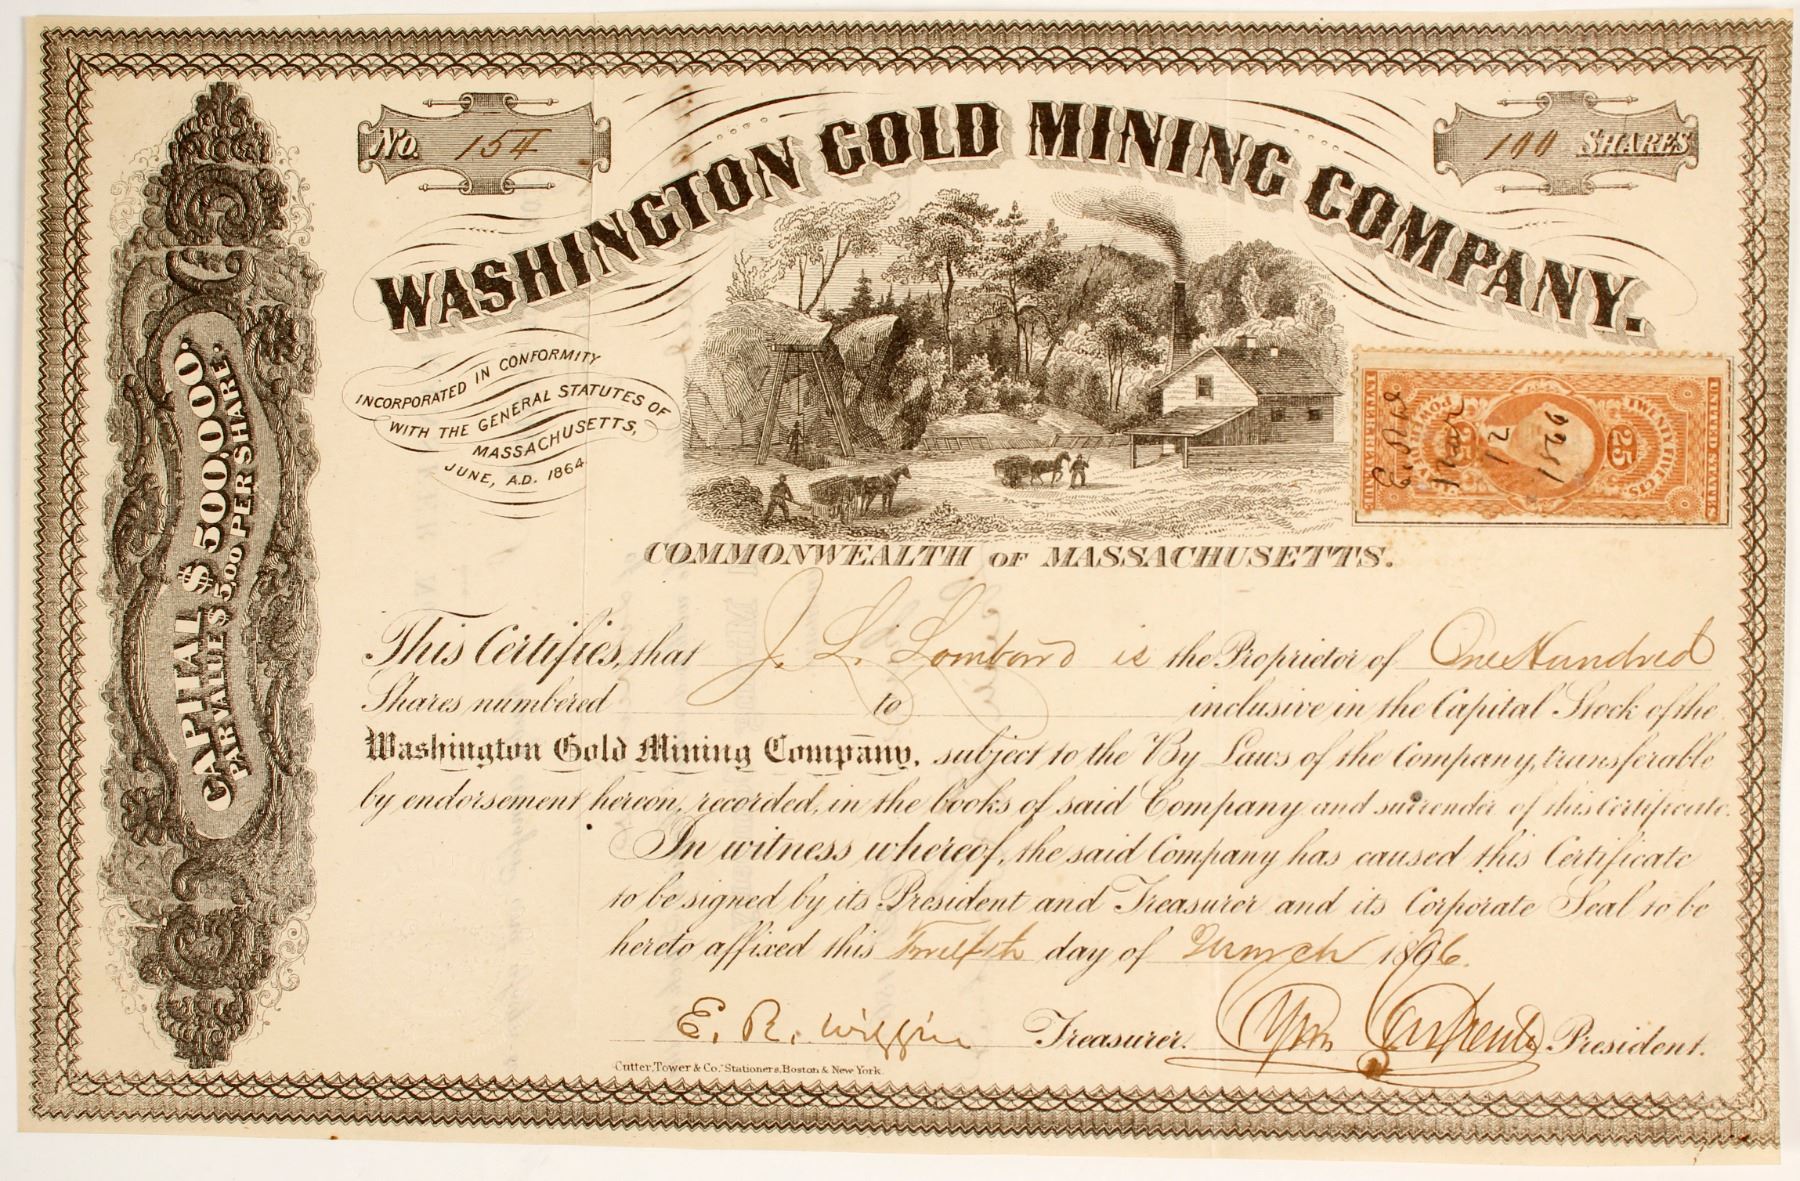 No. 154
100 SHARES
WASHINGTON GOLD MINING COMPANY.
INCORPORATED IN CONFORMITY
WITH THE GENERAL STATUTES OF
MASSACHUSETTS,
JUNE, A.D. 1864
CAPITAL $ 500,000.
PAR VALUE $ 5.00 PER SHARE.
UNITED STATES
TWENTY FIVE CTS.
25 25
POWER OF ATTY
INTER. REVENUE
E. R. W.
Mar
12
1866
COMMONWEALTH OF MASSACHUSETTS.
This Certifies, that J. L. Lombard is the Proprietor of One Hundred
Shares numbered to inclusive in the Capital Stock of the
Washington Gold Mining Company, subject to the By Laws of the Company, transferable
by endorsement hereon, recorded, in the books of said Company and surrender of this Certificate.
In witness whereof, the said Company has caused this Certificate
to be signed by its President and Treasurer and its Corporate Seal to be
hereto affixed this Twelfth day of March 1866.
E. R. Wiggin Treasurer. Wm President.
Cutter, Tower & Co. Stationers, Boston & New York.